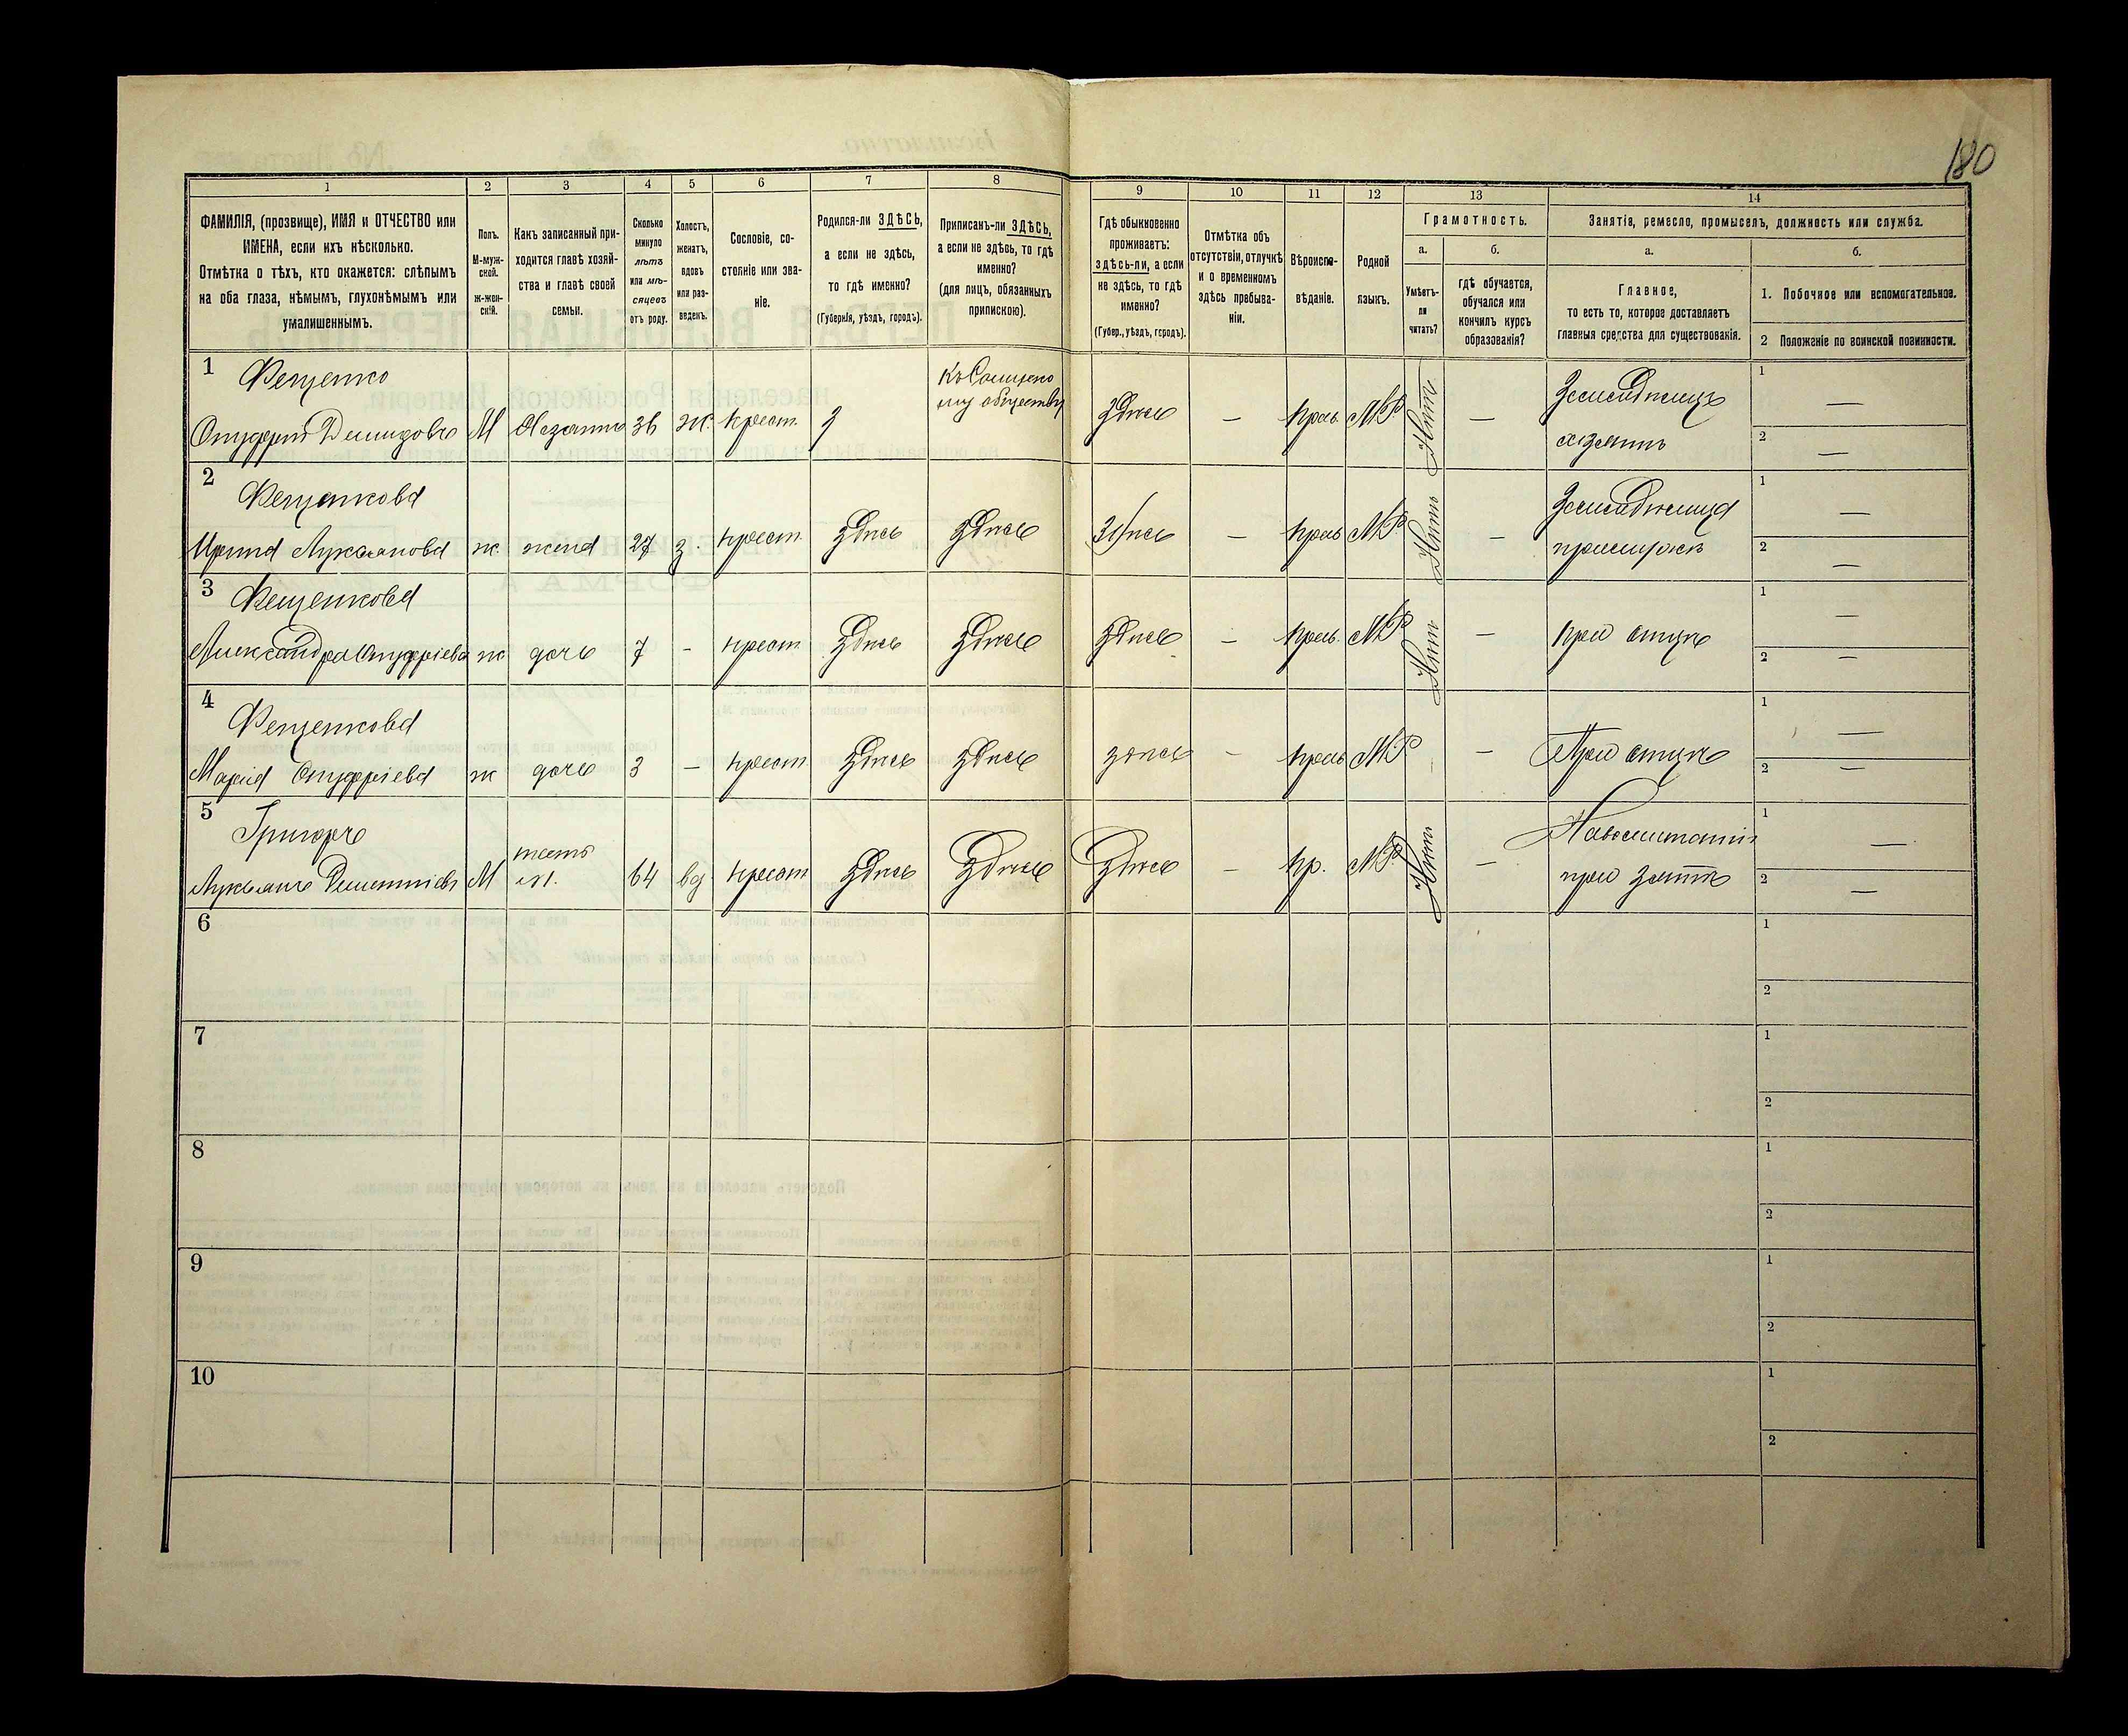 180
1 2 3 4 5 6 7 8 9 10 11 12 13 14
ФАМИЛІЯ, (прозвище), ИМЯ и ОТЧЕСТВО или
ИМЕНА, если ихъ нѣсколько.
Отмѣтка о тѣхъ, кто окажется: слѣпымъ
на оба глаза, нѣмымъ, глухонѣмымъ или
умалишеннымъ.
Полъ.
М-муж-
ской.
ж-жен-
скій.
Какъ записанный при-
ходится главѣ хозяй-
ства и главѣ своей
семьи.
Сколько
минуло
лѣтъ
или мѣ-
сяцевъ
отъ роду.
Холостъ,
женатъ,
вдовъ
или раз-
веденъ.
Сословіе, со-
стояніе или зва-
ніе.
Родился-ли ЗДѢСЬ,
а если не здѣсь,
то гдѣ именно?
(Губернія, уѣздъ, городъ).
Приписанъ-ли ЗДѢСЬ,
а если не здѣсь, то гдѣ
именно?
(для лицъ, обязанныхъ
припискою).
Гдѣ обыкновенно
проживаетъ:
здѣсь-ли, а если
не здѣсь, то гдѣ
именно?
(Губер., уѣздъ, городъ).
Отмѣтка объ
отсутствіи, отлучкѣ
и о временномъ
здѣсь пребыва-
ніи.
Вѣроиспо-
вѣданіе.
Родной
языкъ.
Грамотность.
а.
Умѣетъ-
ли
читать?
б.
гдѣ обучается,
обучался или
кончилъ курсъ
образованія?
Занятія, ремесло, промыселъ, должность или служба.
а.
Главное,
то есть то, которое доставляетъ
главныя средства для существованія.
б.
1. Побочное или вспомогательное.
2 Положеніе по воинской повинности.
1 Фещенко
Демидовъ М Хозяинъ 36 ж. крест. з
обществу
здѣсь — прав. М.Р. Нѣтъ —
хозяинъ
1 —
2 —
2 Фещенкова
Ирина Лукьянова ж. жена 27 з. крест. здѣсь здѣсь здѣсь — прав М.Р. Нѣтъ —
1 —
2 —
3 Фещенкова
Александра ж дочь 7 - крест здѣсь здѣсь здѣсь — прав. М.Р. Нѣтъ — при отцѣ
1 —
2 —
4 Фещенкова
Марія ж дочь 3 — крест здѣсь здѣсь здѣсь — прав М.Р. — — При отцѣ
1 —
2 —
5 Григоръ
Лукьянъ М тесть 64 вд. крест здѣсь здѣсь здѣсь — пр. М.Р. Нѣтъ —
при зятѣ
1 —
2 —
6 1
2
7 1
2
8 1
2
9 1
2
10 1
2